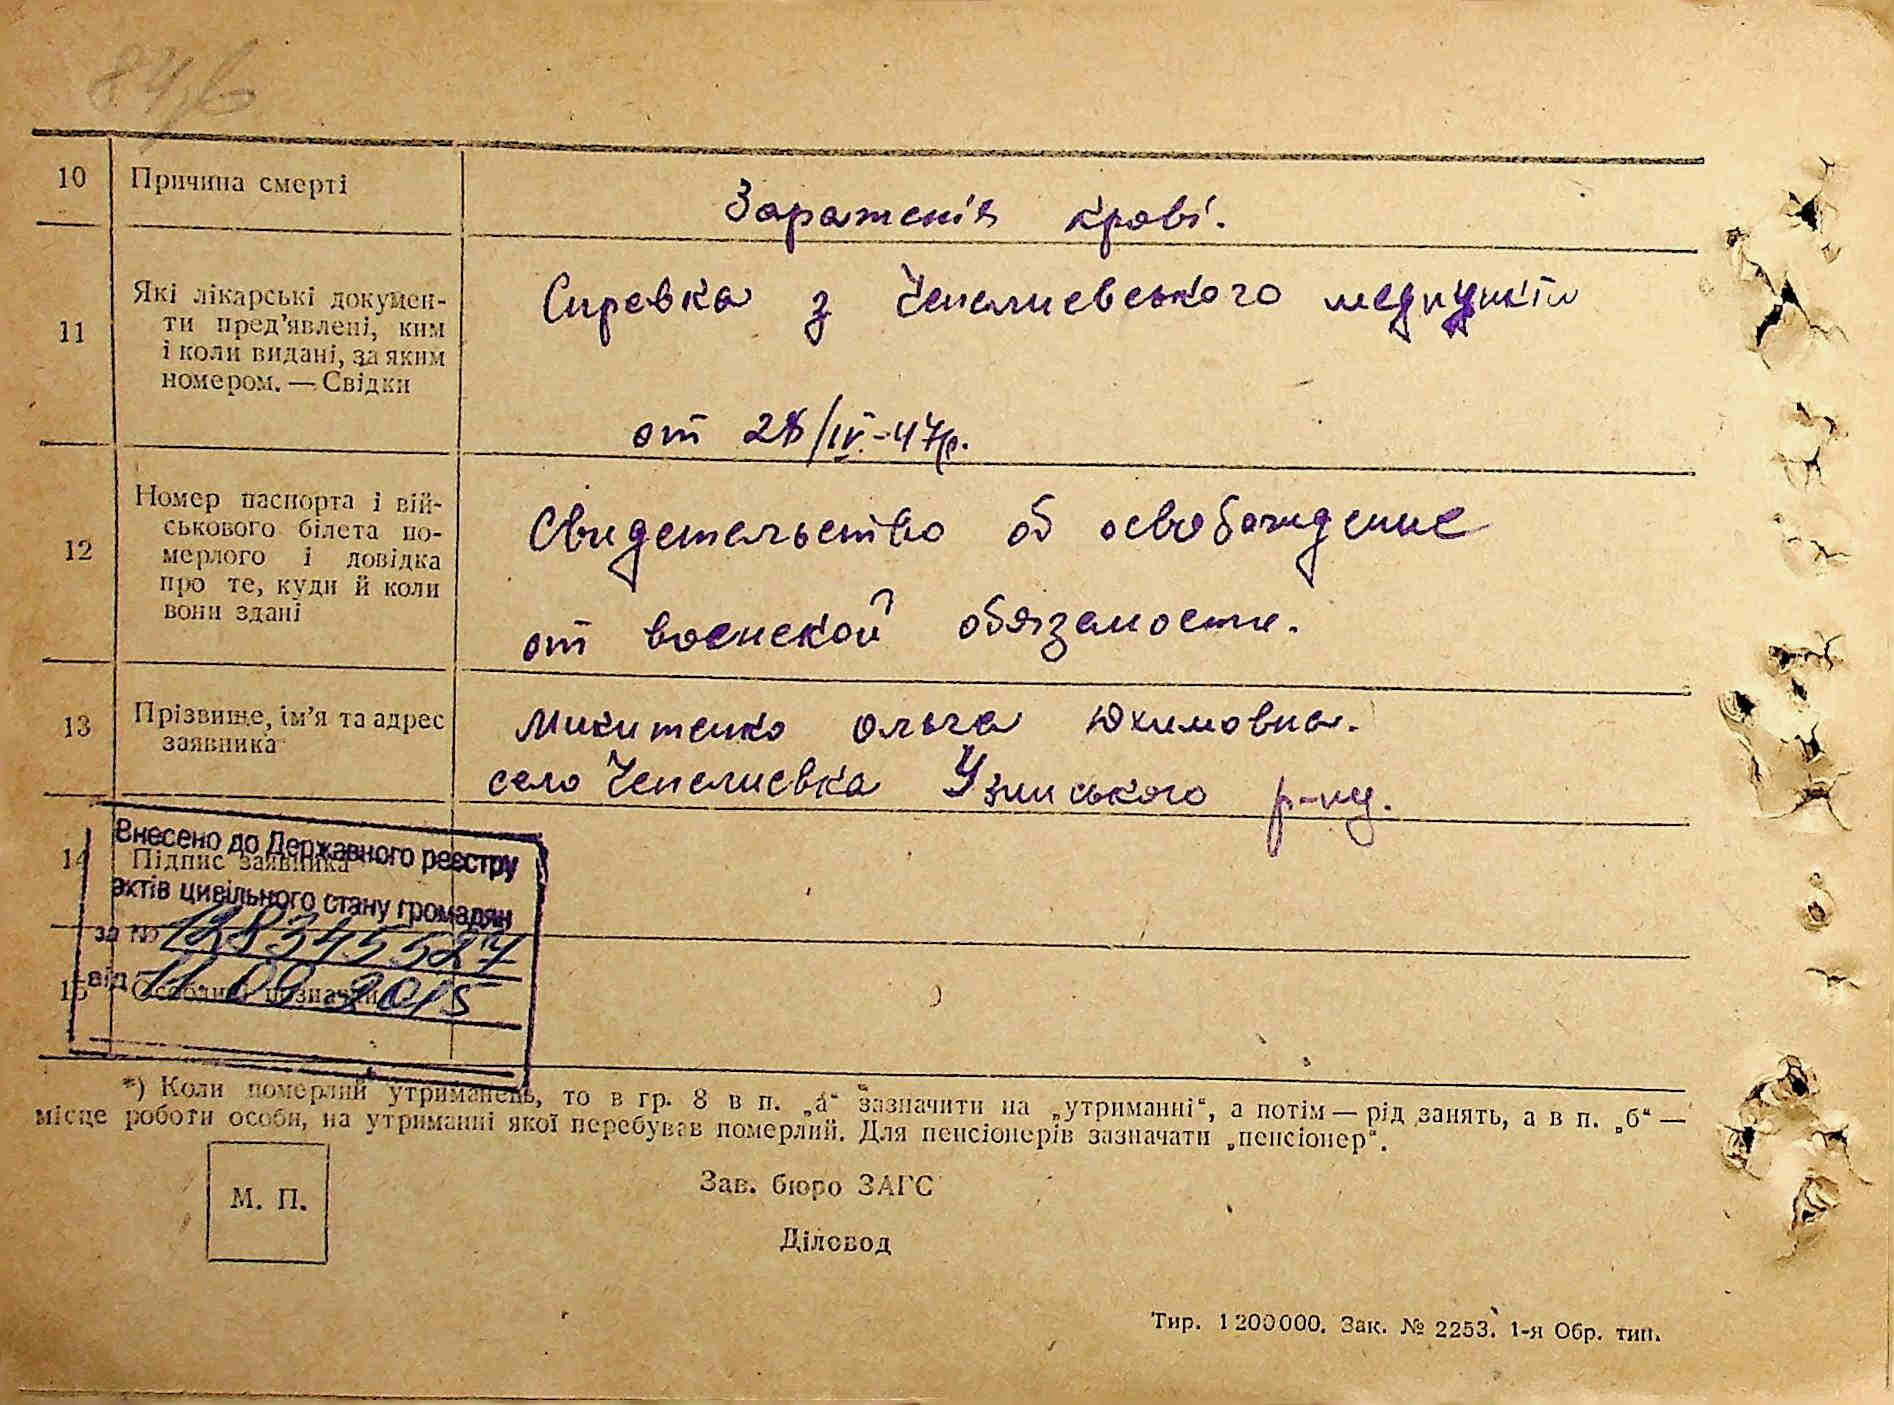 10 Причина смерті
Зараженія крові.
11 Які лікарські докумен-
ти пред'явлені, ким
і коли видані, за яким
номером. — Свідки
Справка з Чепелиевського медпункту
от 28/IV-47р.
12 Номер паспорта і вій-
ськового білета по-
мерлого і довідка
про те, куди й коли
вони здані
Свидетельство об освобождение
от военской обязаности.
13 Прізвище, ім'я та адрес
заявника
Микитенко Ольга Юхимовна.
село Чепелиевка Узинського р-ну.
14 Підпис заявника
Внесено до Державного реєстру
актів цивільного стану громадян
за № 128345527
від 11.09.2015
15 Особливі зазначки
*) Коли померлий утриманець, то в гр. 8 в п. „а“ зазначити на „утриманні“, а потім — рід занять, а в п. „б“ —
місце роботи особи, на утриманні якої перебував померлий. Для пенсіонерів зазначати „пенсіонер“.
М. П.
Зав. бюро ЗАГС
Діловод
Тир. 1200000. Зак. № 2253. 1-я Обр. тип.